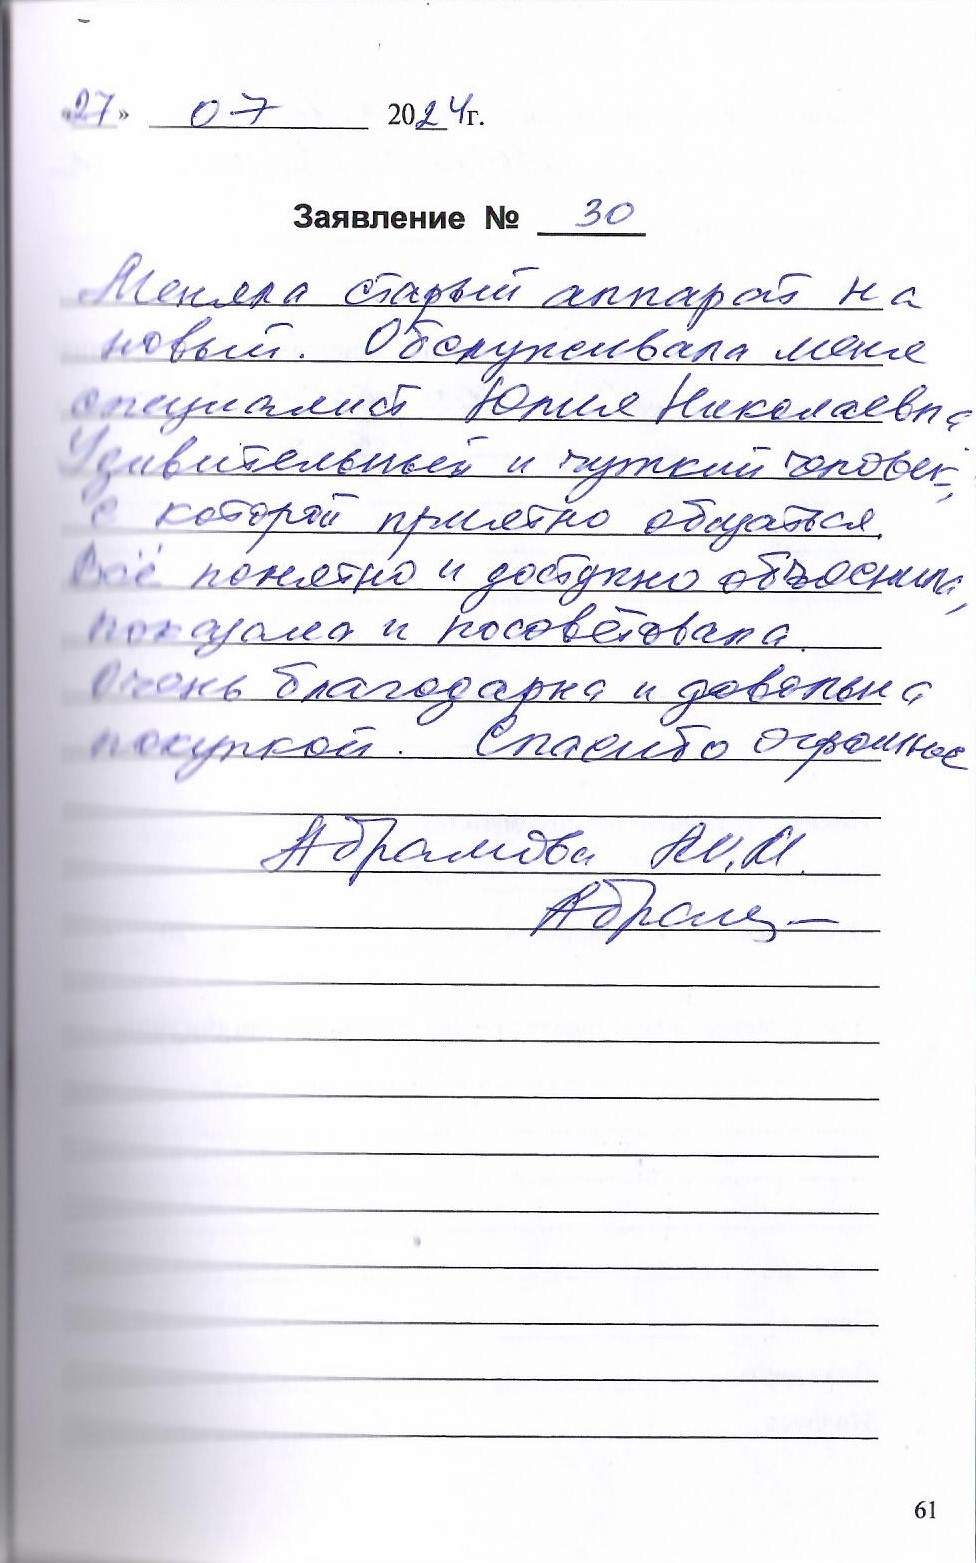 «27» 07 2024г.
Заявление № 30
Меняла старый аппарат на
новый. Обслуживала меня
специалист Юлия Николаевна
Удивительный и чуткий человек,
с которой приятно общаться.
Всё понятно и доступно объяснила,
показала и посоветовала.
Очень благодарна и довольна
покупкой. Спасибо огромное
Абрамова М.М.
61